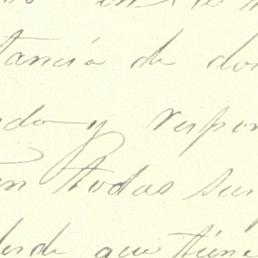 en
tancia de do
ndo y respon
en todas sus
desde que tiene